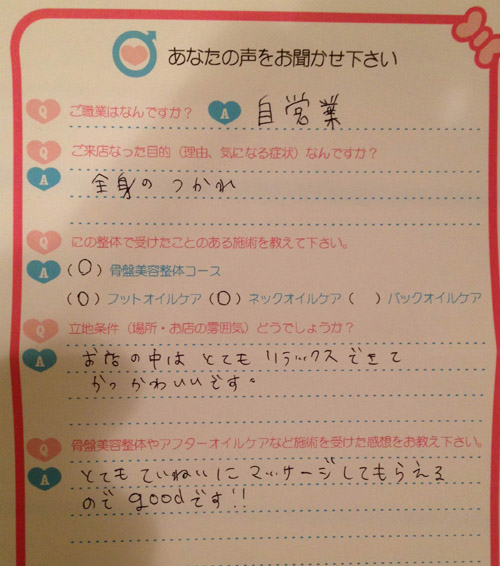 あなたの声をお聞かせ下さい
Q ご職業はなんですか? A 自営業
Q ご来店なった目的(理由、気になる症状)なんですか?
A 全身のつかれ
Q にの整体で受けたことのある施術を教えて下さい。
A (○)骨盤美容整体コース
(○)フットオイルケア(○)ネックオイルケア( )バックオイルケア
Q 立地条件(場所・お店の雰囲気)どうでしょうか?
A お店の中はとてもリラックスできて
かつかわいいです。
Q 骨盤美容整体やアフターオイルケアなど施術を受けた感想をお教え下さい。
A とてもていねいにマッサージしてもらえる
のでgoodです!!